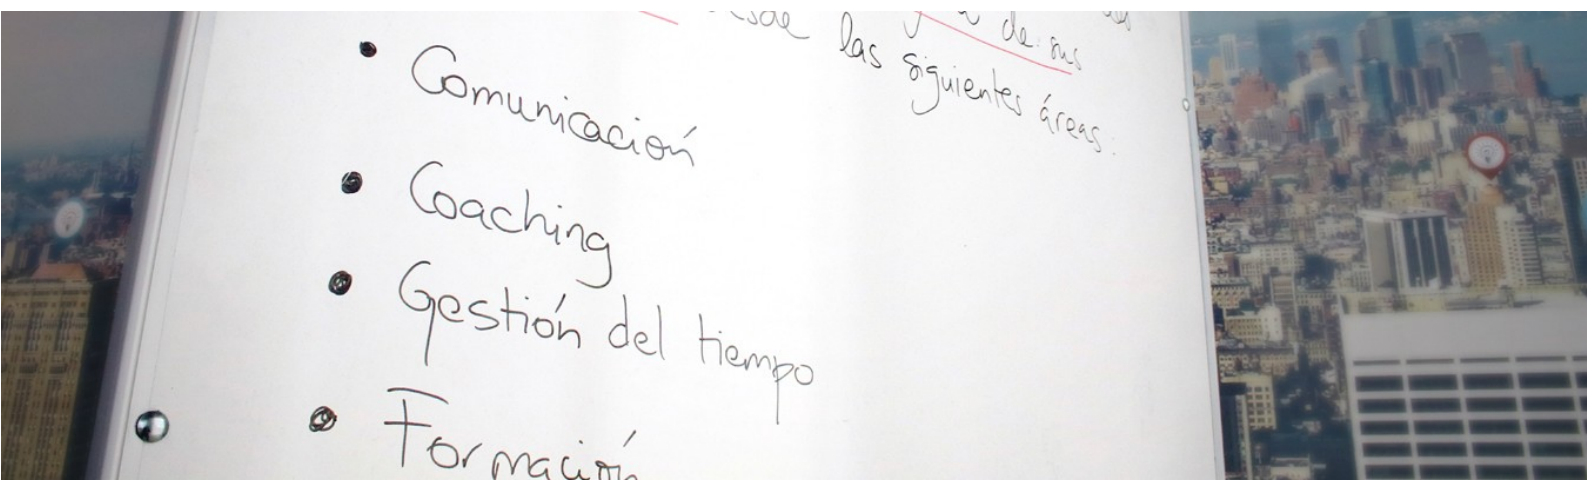 de sus
desde las siguientes áreas:
• Comunicación
• Coaching
• Gestión del tiempo
• Formación